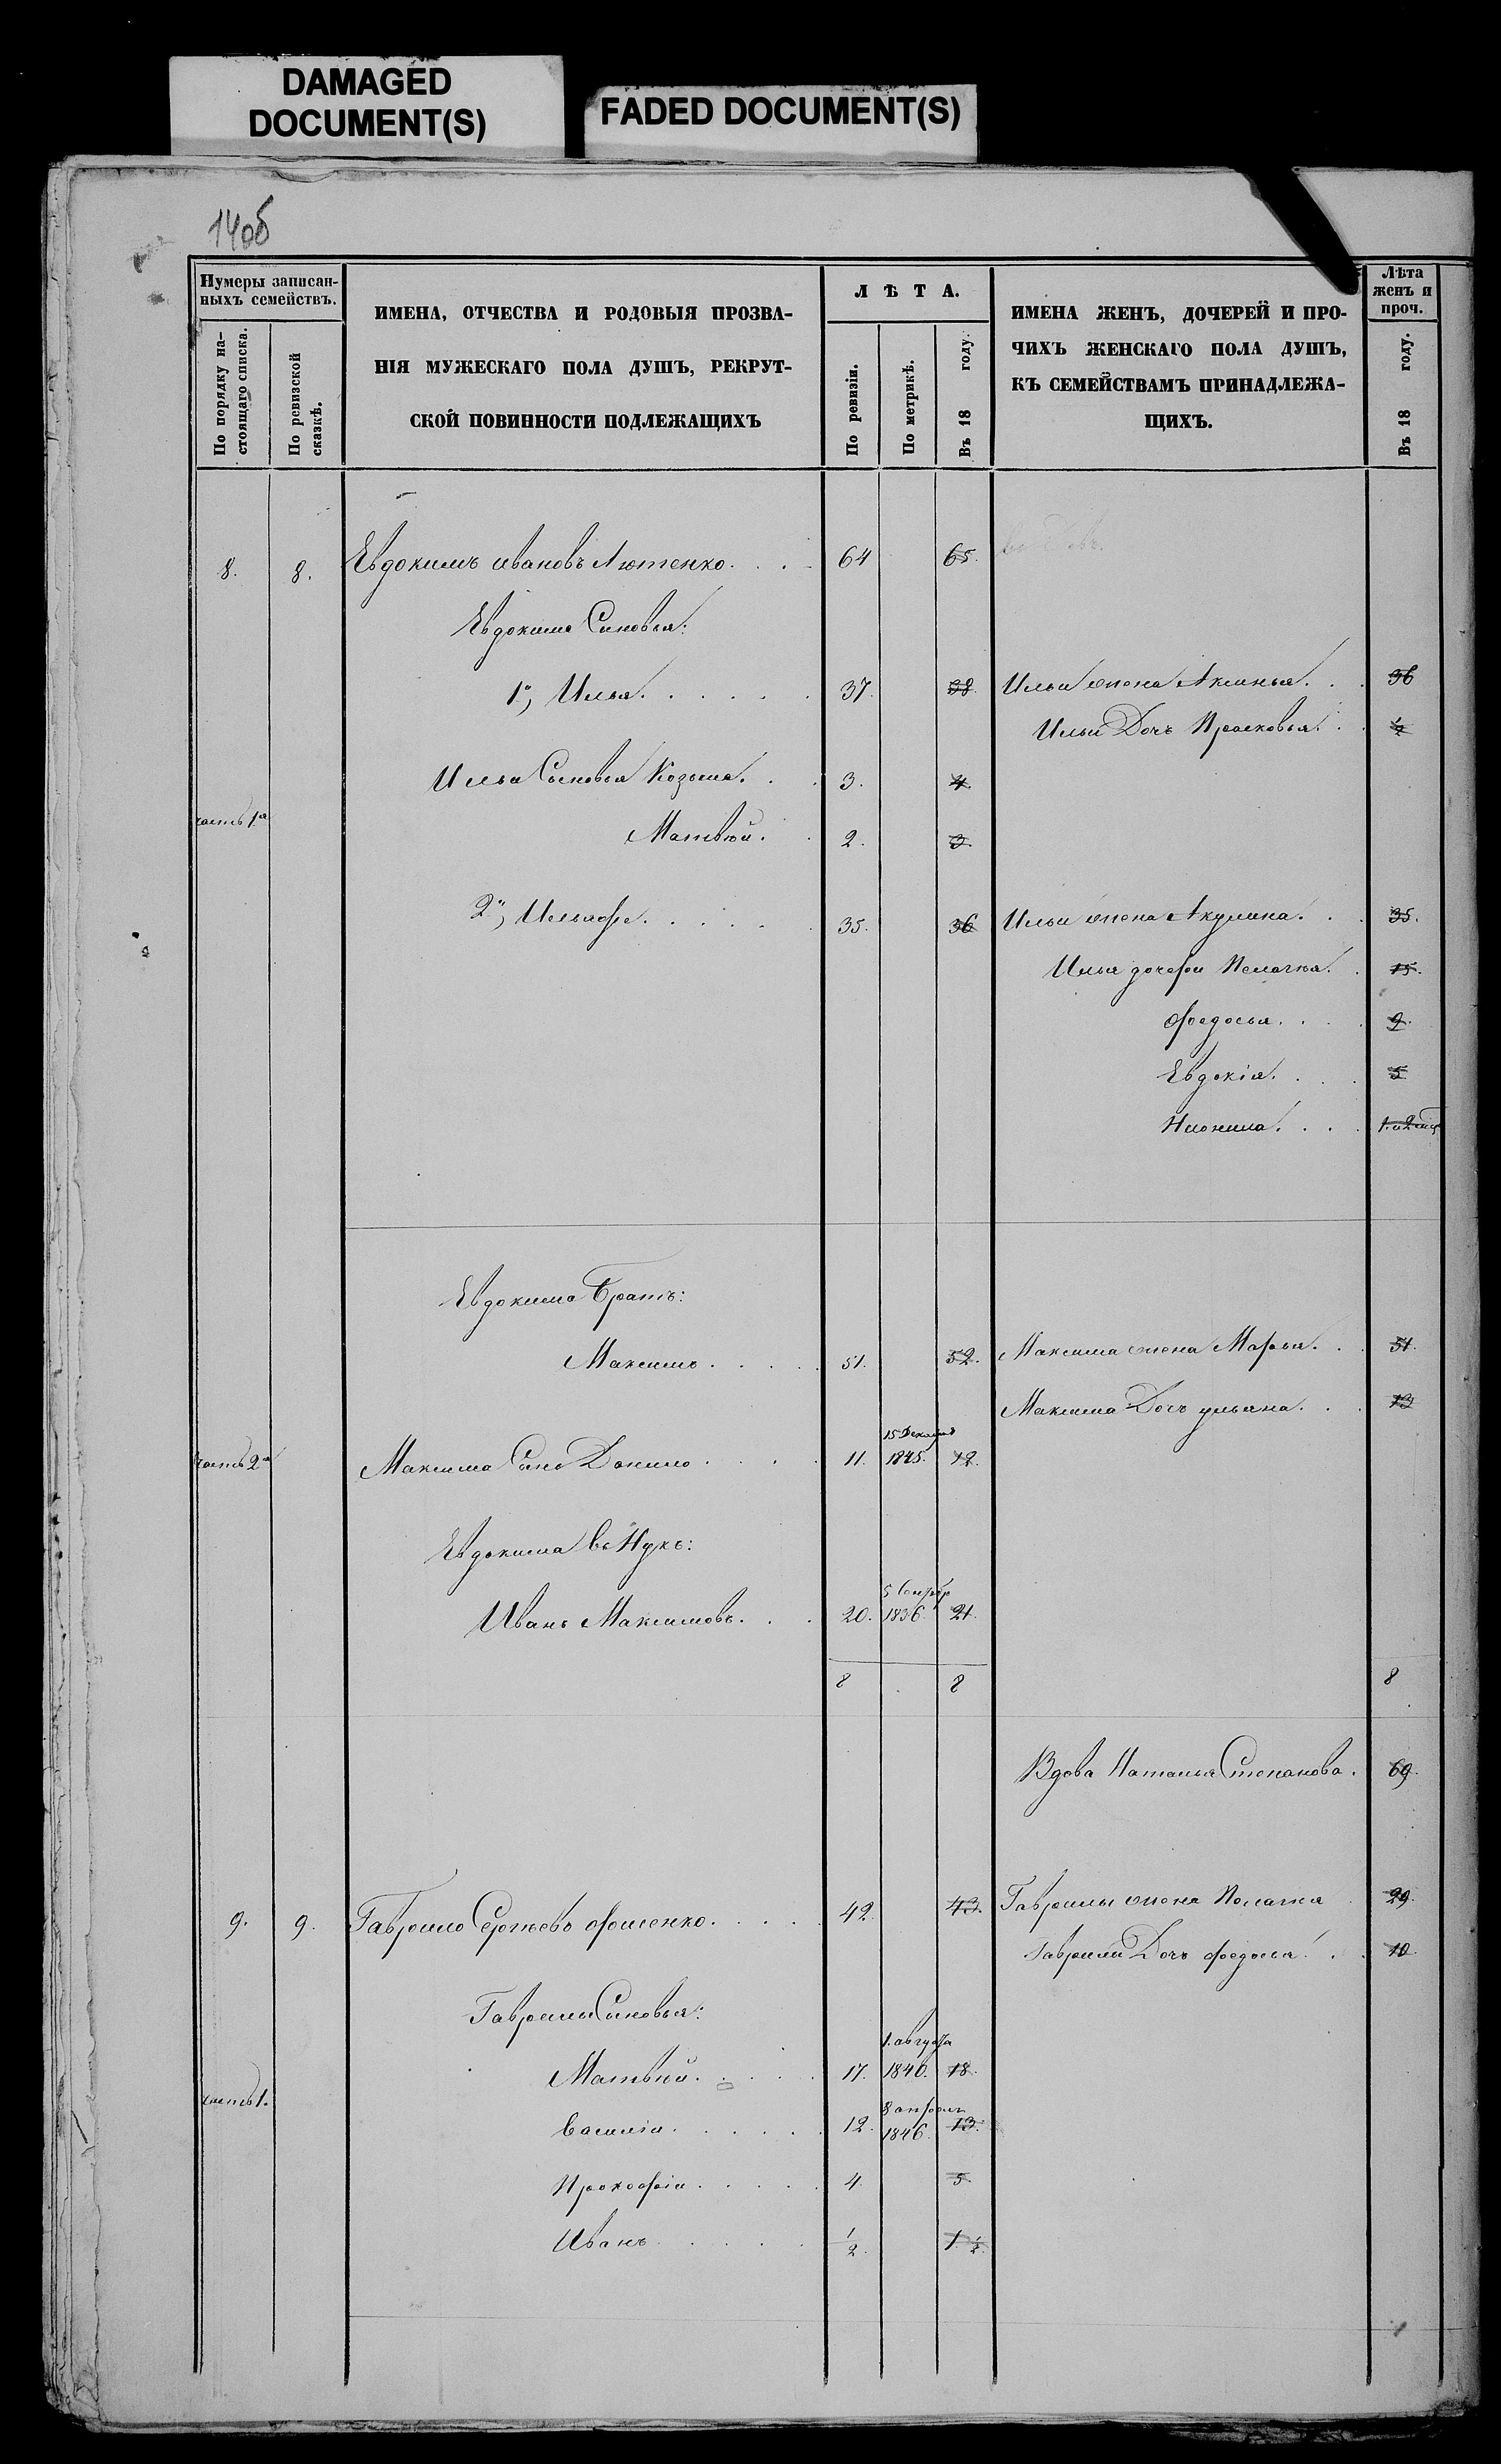 DAMAGED
DOCUMENT(S)
FADED DOCUMENT(S)
140б
Нумеры записан-
ныхъ семействъ.
По порядку на-
стоящаго списка.
По ревизской
сказкѣ.
ИМЕНА, ОТЧЕСТВА И РОДОВЫЯ ПРОЗВА-
НІЯ МУЖЕСКАГО ПОЛА ДУШЪ, РЕКРУТ-
СКОЙ ПОВИННОСТИ ПОДЛЕЖАЩИХЪ
ЛѢТА.
По ревизіи.
По метрикѣ.
Въ 18 году.
ИМЕНА ЖЕНЪ, ДОЧЕРЕЙ И ПРО-
ЧИХЪ ЖЕНСКАГО ПОЛА ДУШЪ,
КЪ СЕМЕЙСТВАМЪ ПРИНАДЛЕЖА-
ЩИХЪ.
Лѣта
женъ и
проч.
Въ 18 году.
8. 8. Евдокимъ ивановъ Лютенко. 64 65.
Евдокима Синовья:
1й, Илья. 37. 38. Ильи жена Аксинья. 36
Ильи Дочъ Прасковья.
Ильи Сыновья Козьма. 3. 4.
часть 1я
Матвѣй. 2. 3.
2й, 35. 36 Ильи жена Акулина. 35.
Ильи дочери Пелагия. 15.
Федосья. 9.
Евдокія. 5
1. и 2 мѣс
Евдокима Братъ:
Максимъ. 51. 52. Максима жена Марья. 51.
Максима Дочъ ульяна. 13
15 Декабря
часть 2я Максима Сынъ Данило. 11. 1845. 12.
Евдокима внукъ:
5 Сентября
Иванъ Максимовъ. 20. 1836. 21.
8 8 8
Вдова Наталья Степанова. 69.
9. 9. Гаврило Сергѣевъ 42. 43. Гаврилы жена Пелагия 29.
Гаврилы Дочъ федосья. 10.
Гаврилы Сыновья:
1. августа
Матвѣй. 17. 1840. 18.
часть 1.
8 апрѣля
Василій. 12. 1846. 13.
Прокофій. 4. 5.
Иванъ. 1/2. 1 1/2.